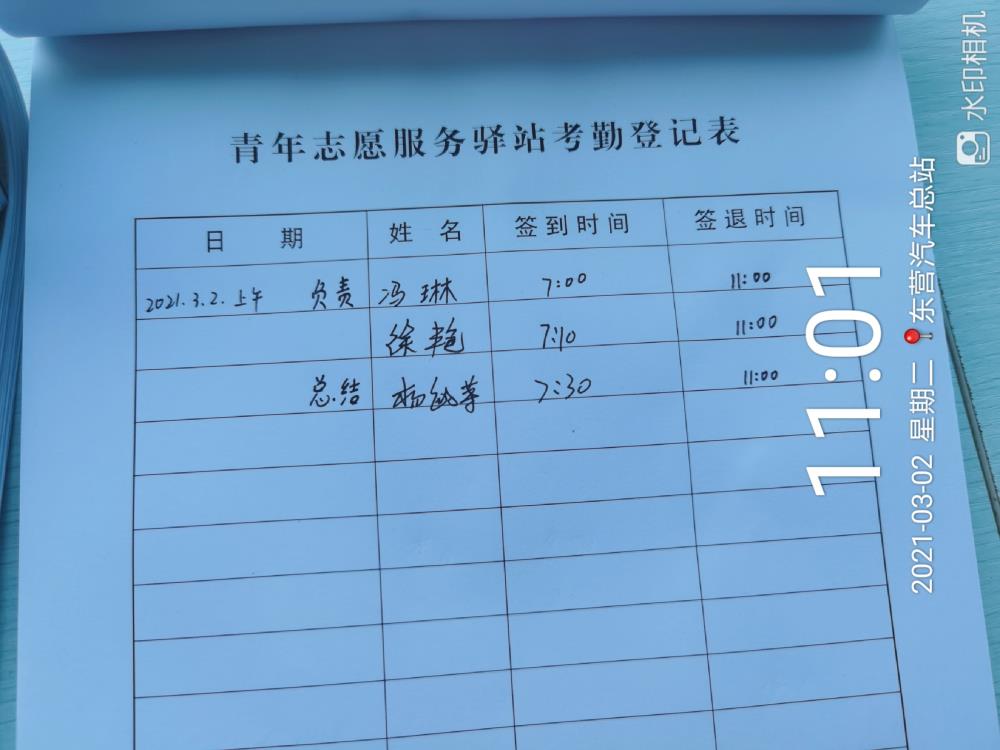 青年志愿服务驿站考勤登记表
日 期 姓 名 签到时间 签退时间
2021.3.2.上午 负责 冯琳 7:00 11:00
徐艳 7:10 11:00
总结 杨 7:30 11:00
水印相机
11:01
2021-03-02 星期二 东营汽车总站